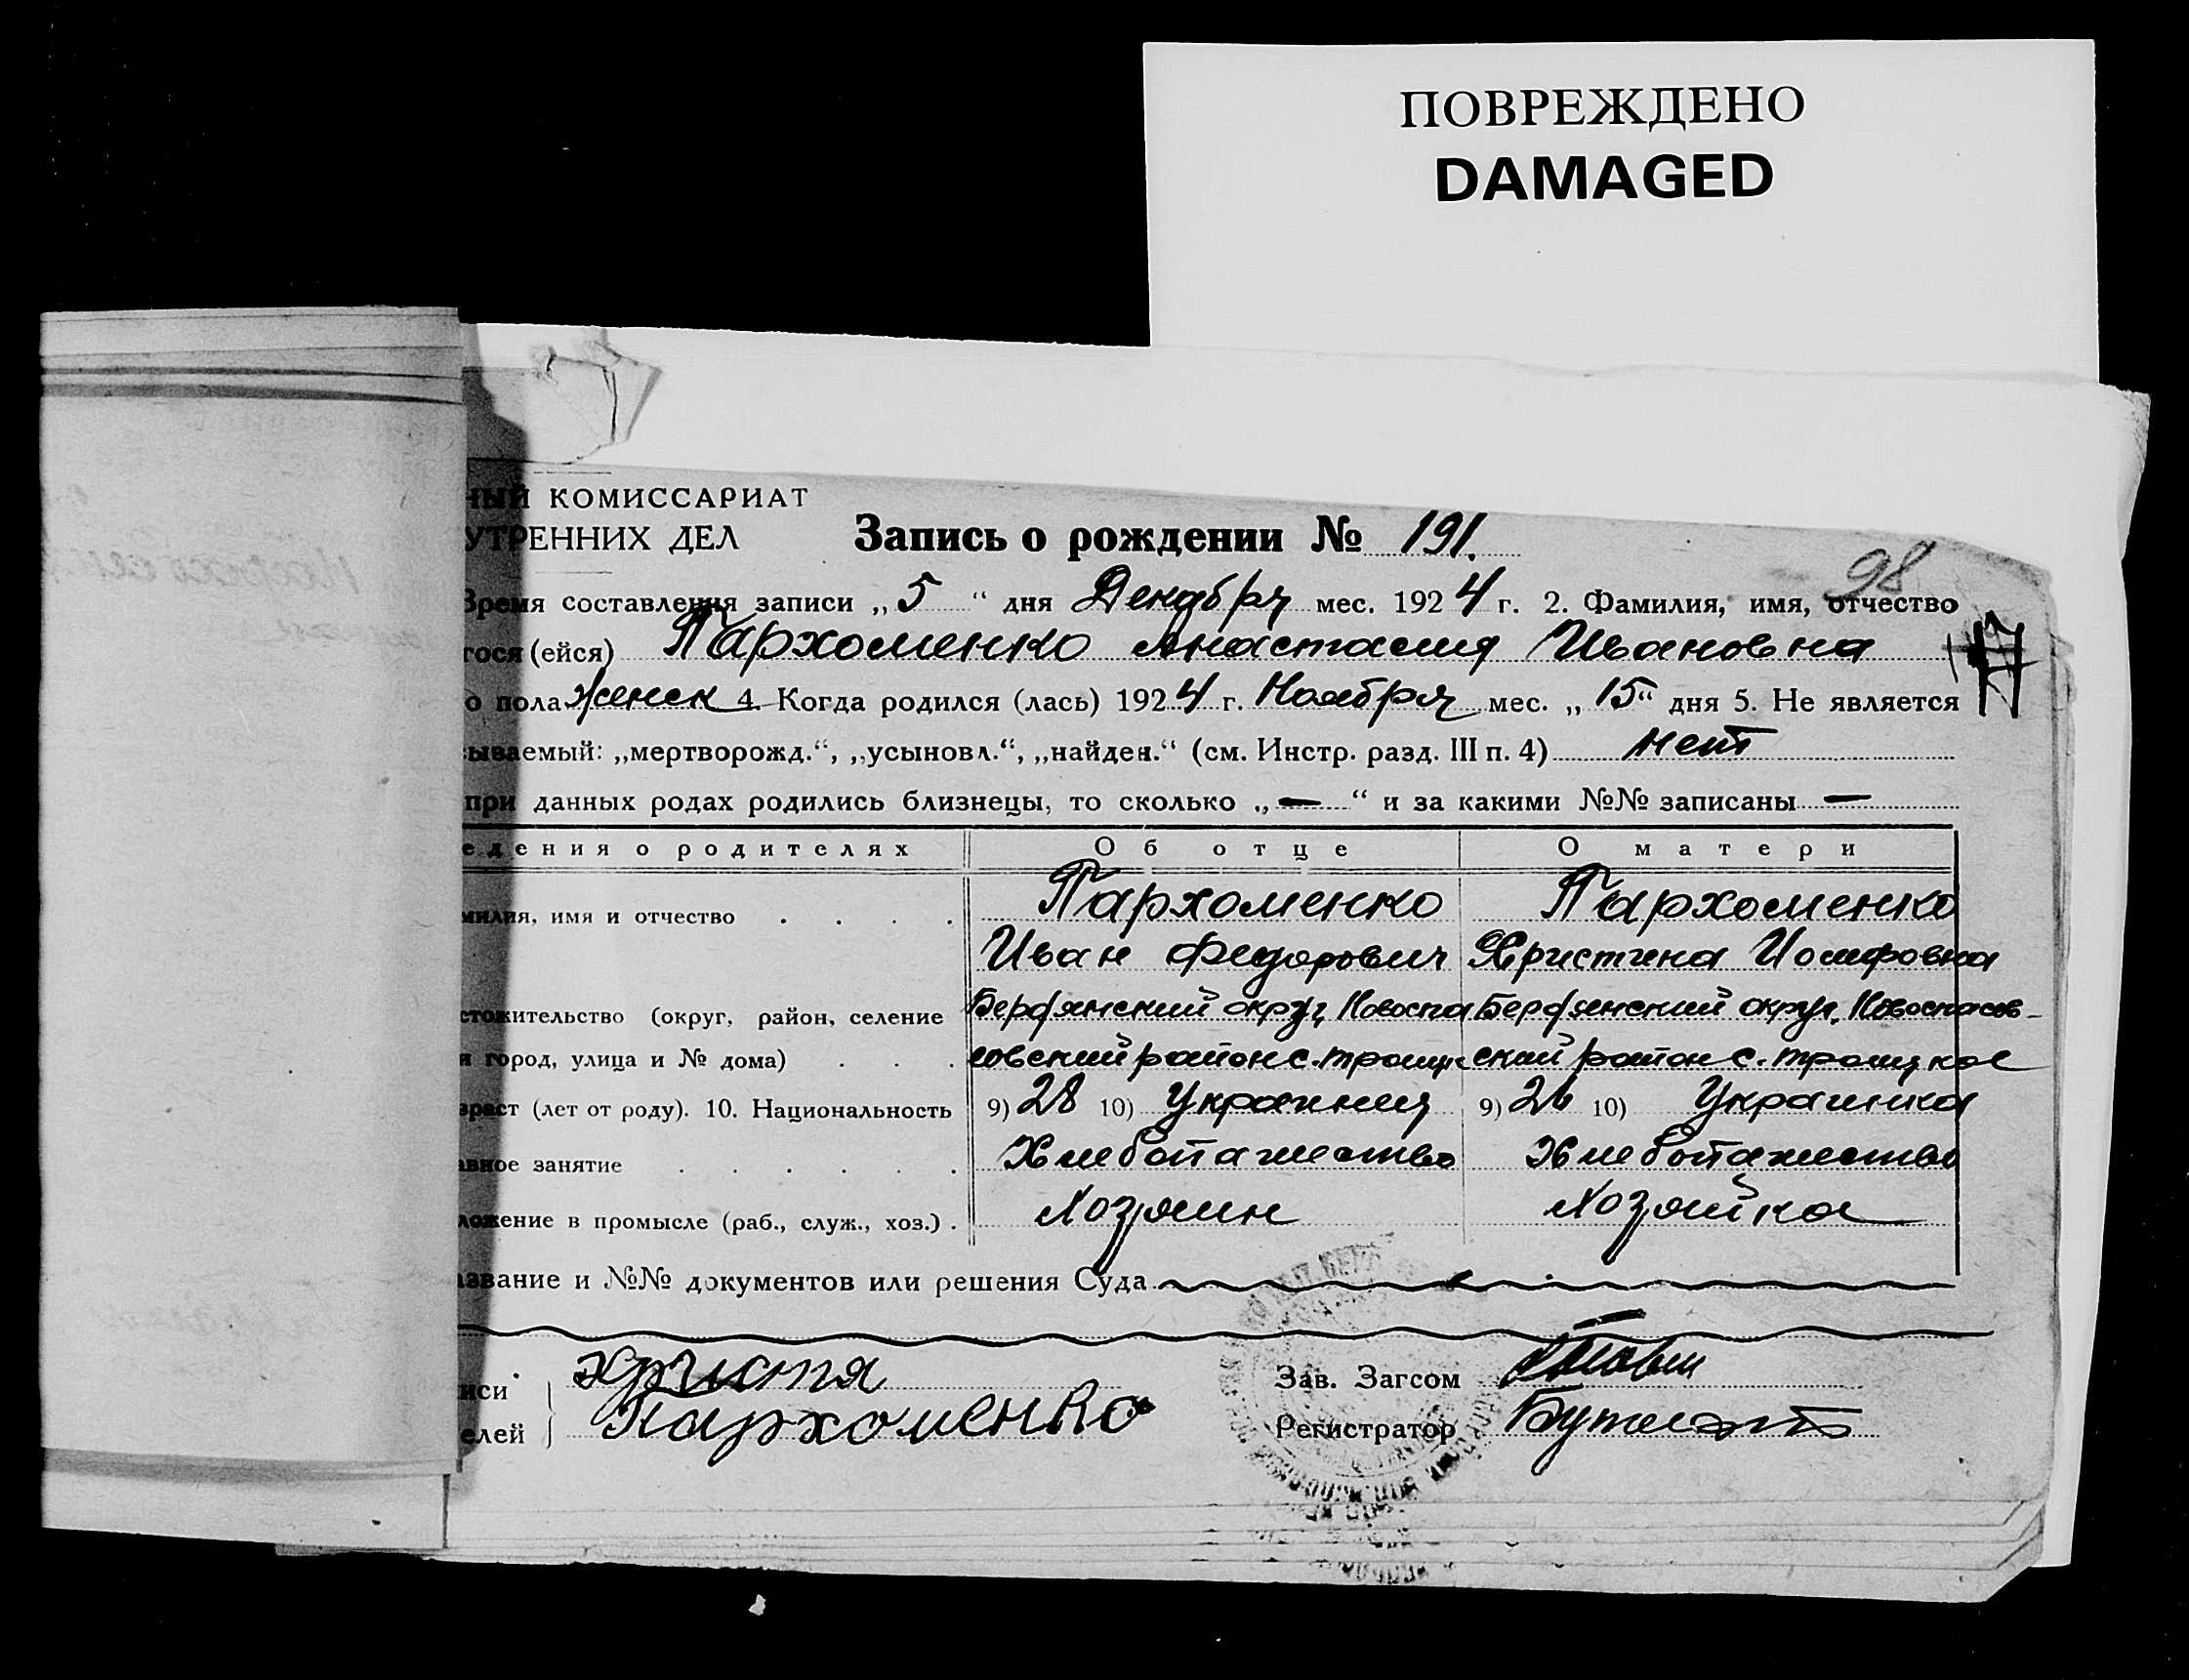 ПОВРЕЖДЕНО
DAMAGED
НЫЙ КОМИССАРИАТ
УТРЕННИХ ДЕЛ
Запись о рождении № 191.
98
Время составления записи „ 5 “ дня Декабря мес. 1924 г. 2. Фамилия, имя, отчество
гося (ейся) Пархоменко Анастасия Ивановна
о пола женск 4. Когда родился (лась) 1924 г. Ноября мес. „ 15 “ дня 5. Не является
сываемый: „мертворожд.“, „усыновл.“, „найден.“ (см. Инстр. разд. III п. 4) нет
при данных родах родились близнецы, то сколько „ — “ и за какими №№ записаны —
едения о родителях Об отце О матери
милия, имя и отчество . . . . Пархоменко Пархоменко
Иван Федорович Христина Иосифовна
стожительство (округ, район, селение Бердянский округ, Новоспа Бердянский округ, Новоспасов-
и город, улица и № дома) . . . совский район с. Троицк ский район с. Троицкое
зраст (лет от роду). 10. Национальность 9) 28 10) Украинец 9) 26 10) Украинка
авное занятие . . . . . . Хлебопашество Хлебопашество
ложение в промысле (раб., служ., хоз.) . Хозяин Хозяйка
азвание и №№ документов или решения Суда
иси Христя Зав. Загсом
елей Пархоменко Регистратор